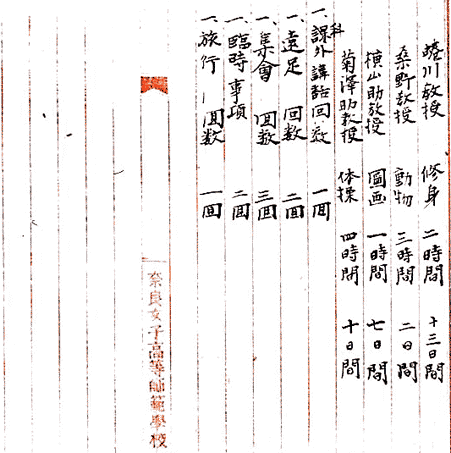 蜷川教授 修身 二時間 十三日間
桑野教授 動物 三時間 二日間
横山助教授 圖画 一時間 七日間
菊澤助教授 体操 四時間 十日間
一、科外講話回数 一回
一、遠足 回数 二回
一、集會 回数 三回
一、臨時事項 二回
一、旅行 回数 一回
奈良女子高等師範學校